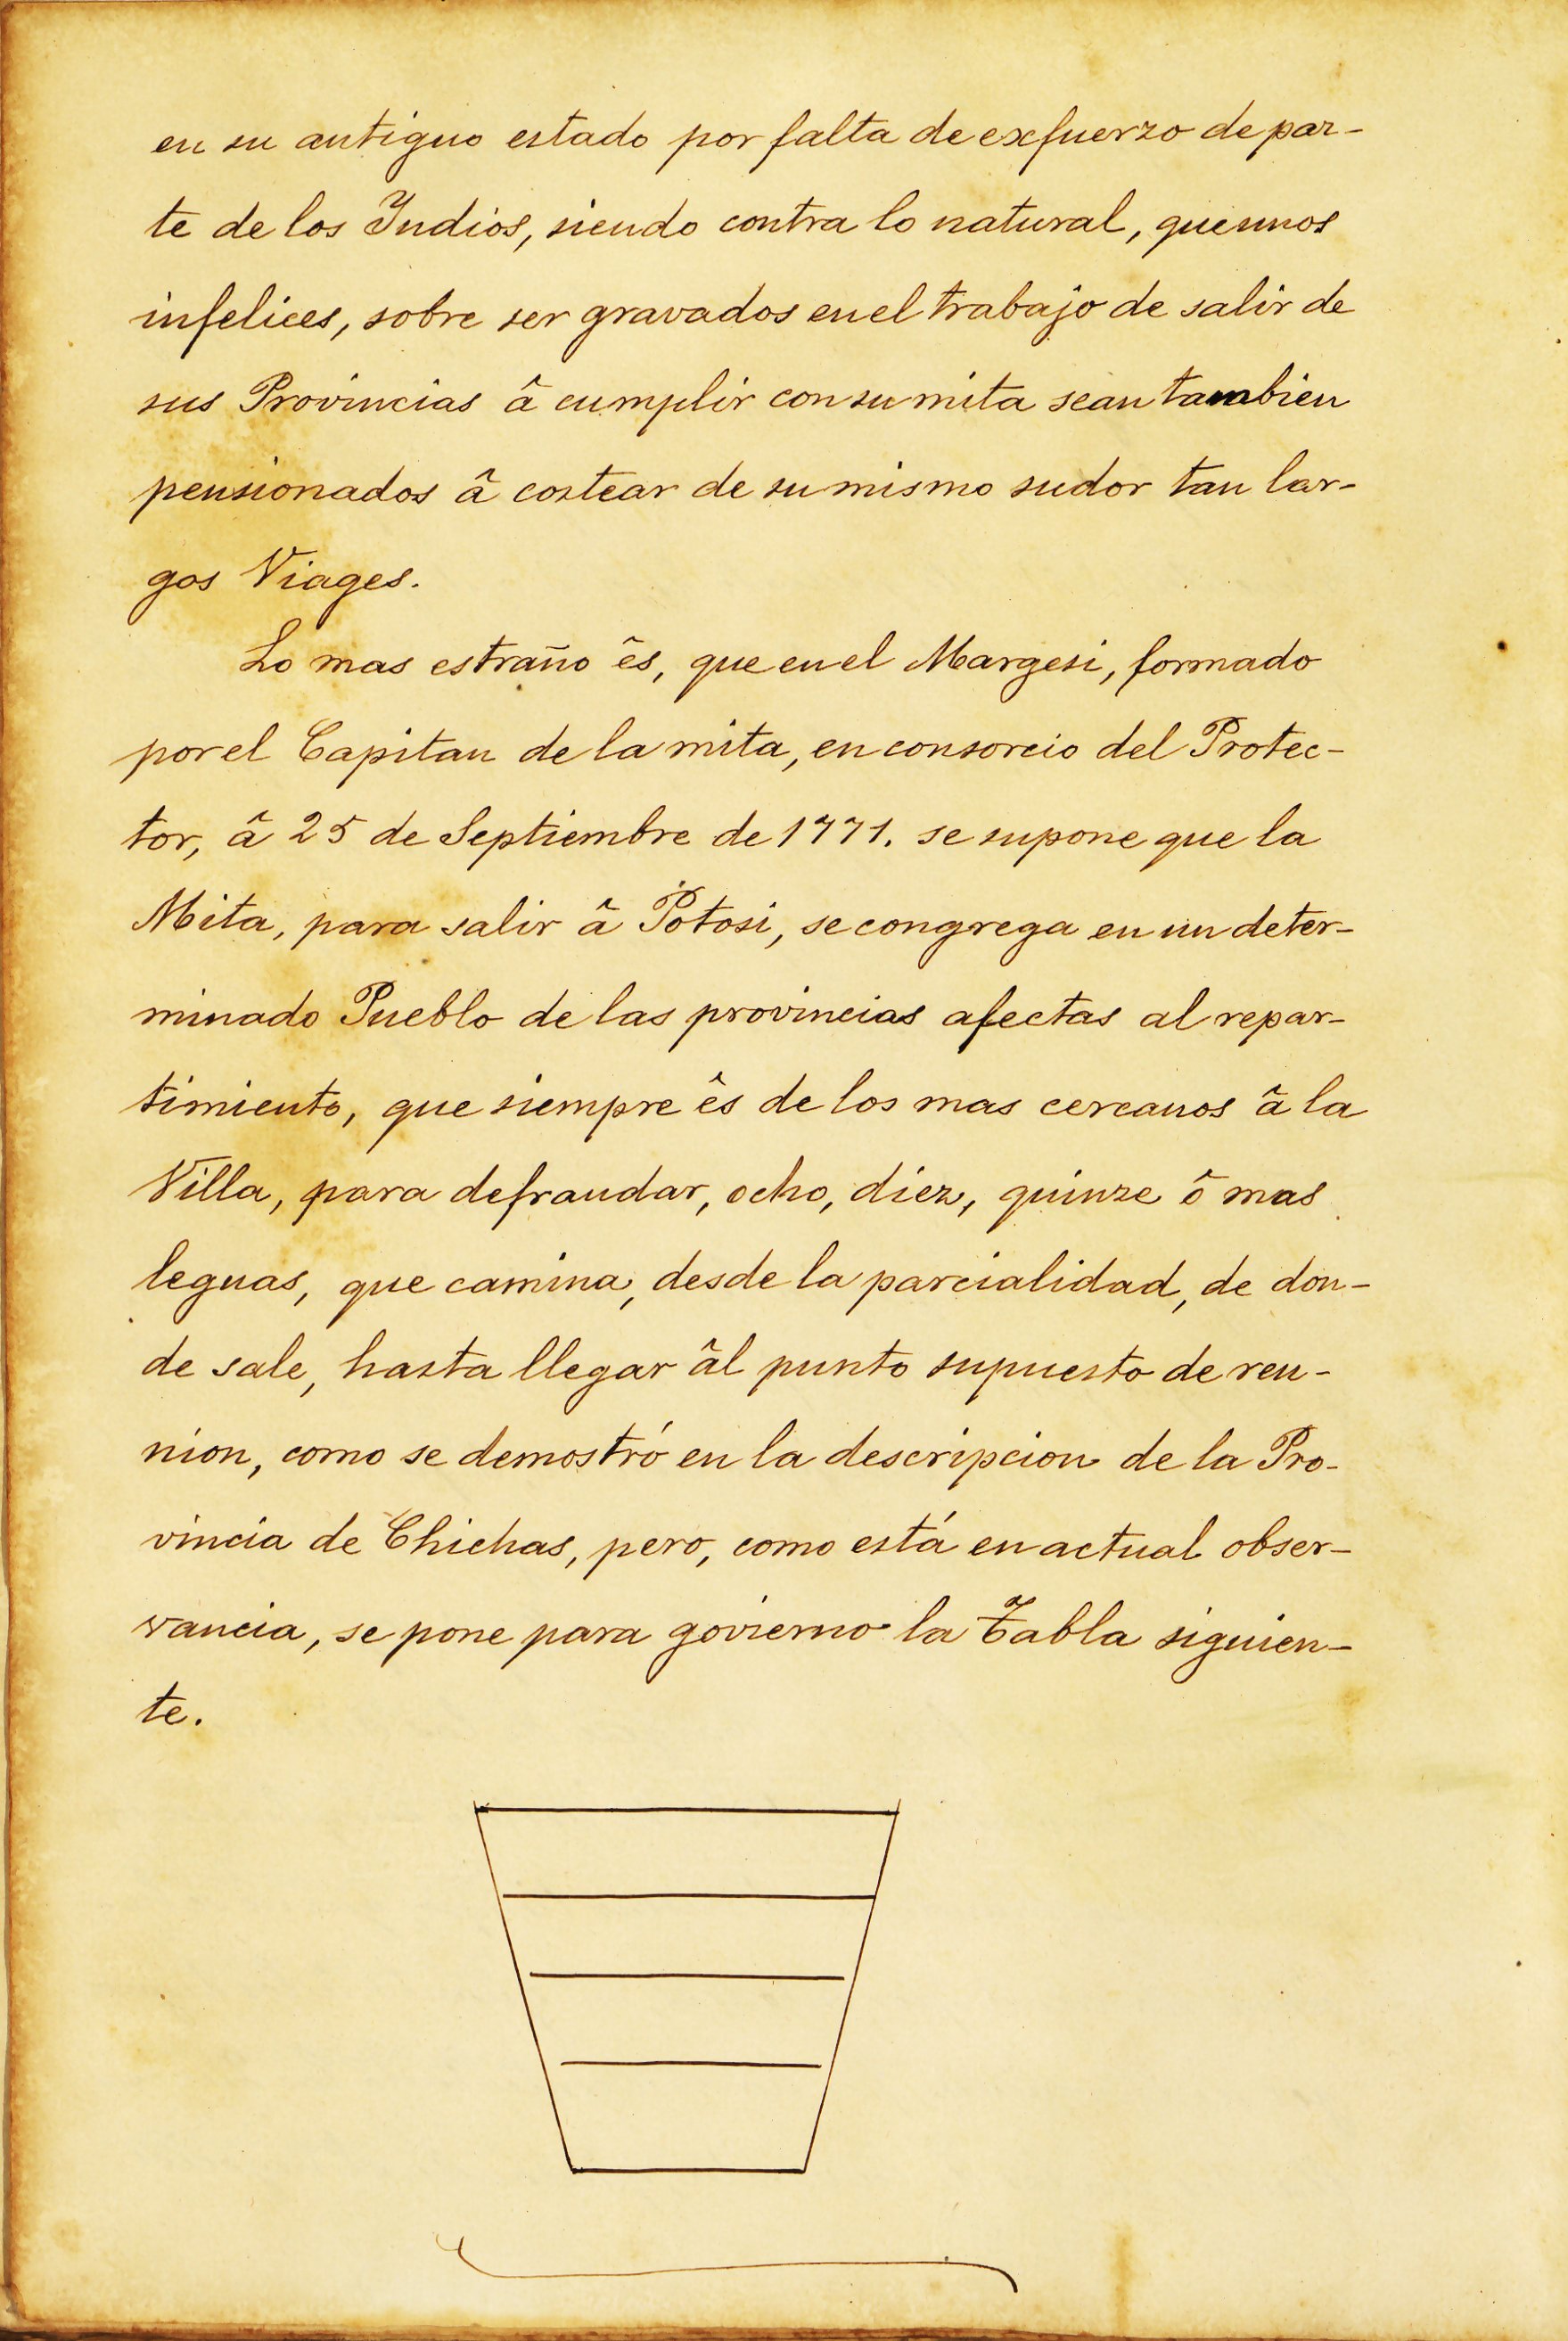 en su antiguo estado por falta de exfuerzo de par-
te de los Yndios, siendo contra lo natural, que unos
infelices, sobre ser gravados en el trabajo de salir de
sus Provincias â cumplir con su mita sean tambien
pensionados â costear de su mismo sudor tan lar-
gos Viages.
Lo mas estraño ês, que en el Margesi, formado
por el Capitan de la mita, en consorcio del Protec-
tor, â 25 de Septiembre de 1771. se supone que la
Mita, para salir â Potosi, se congrega en un deter-
minado Pueblo de las provincias afectas al repar-
timiento, que siempre ês de los mas cercanos â la
Villa, para defraudar, ocho, diez, quinze ô mas
leguas, que camina, desde la parcialidad, de don-
de sale, hasta llegar âl punto supuesto de reu-
nion, como se demostró en la descripcion de la Pro-
vincia de Chichas, pero, como está en actual obser-
vancia, se pone para govierno la Tabla siguien-
te.